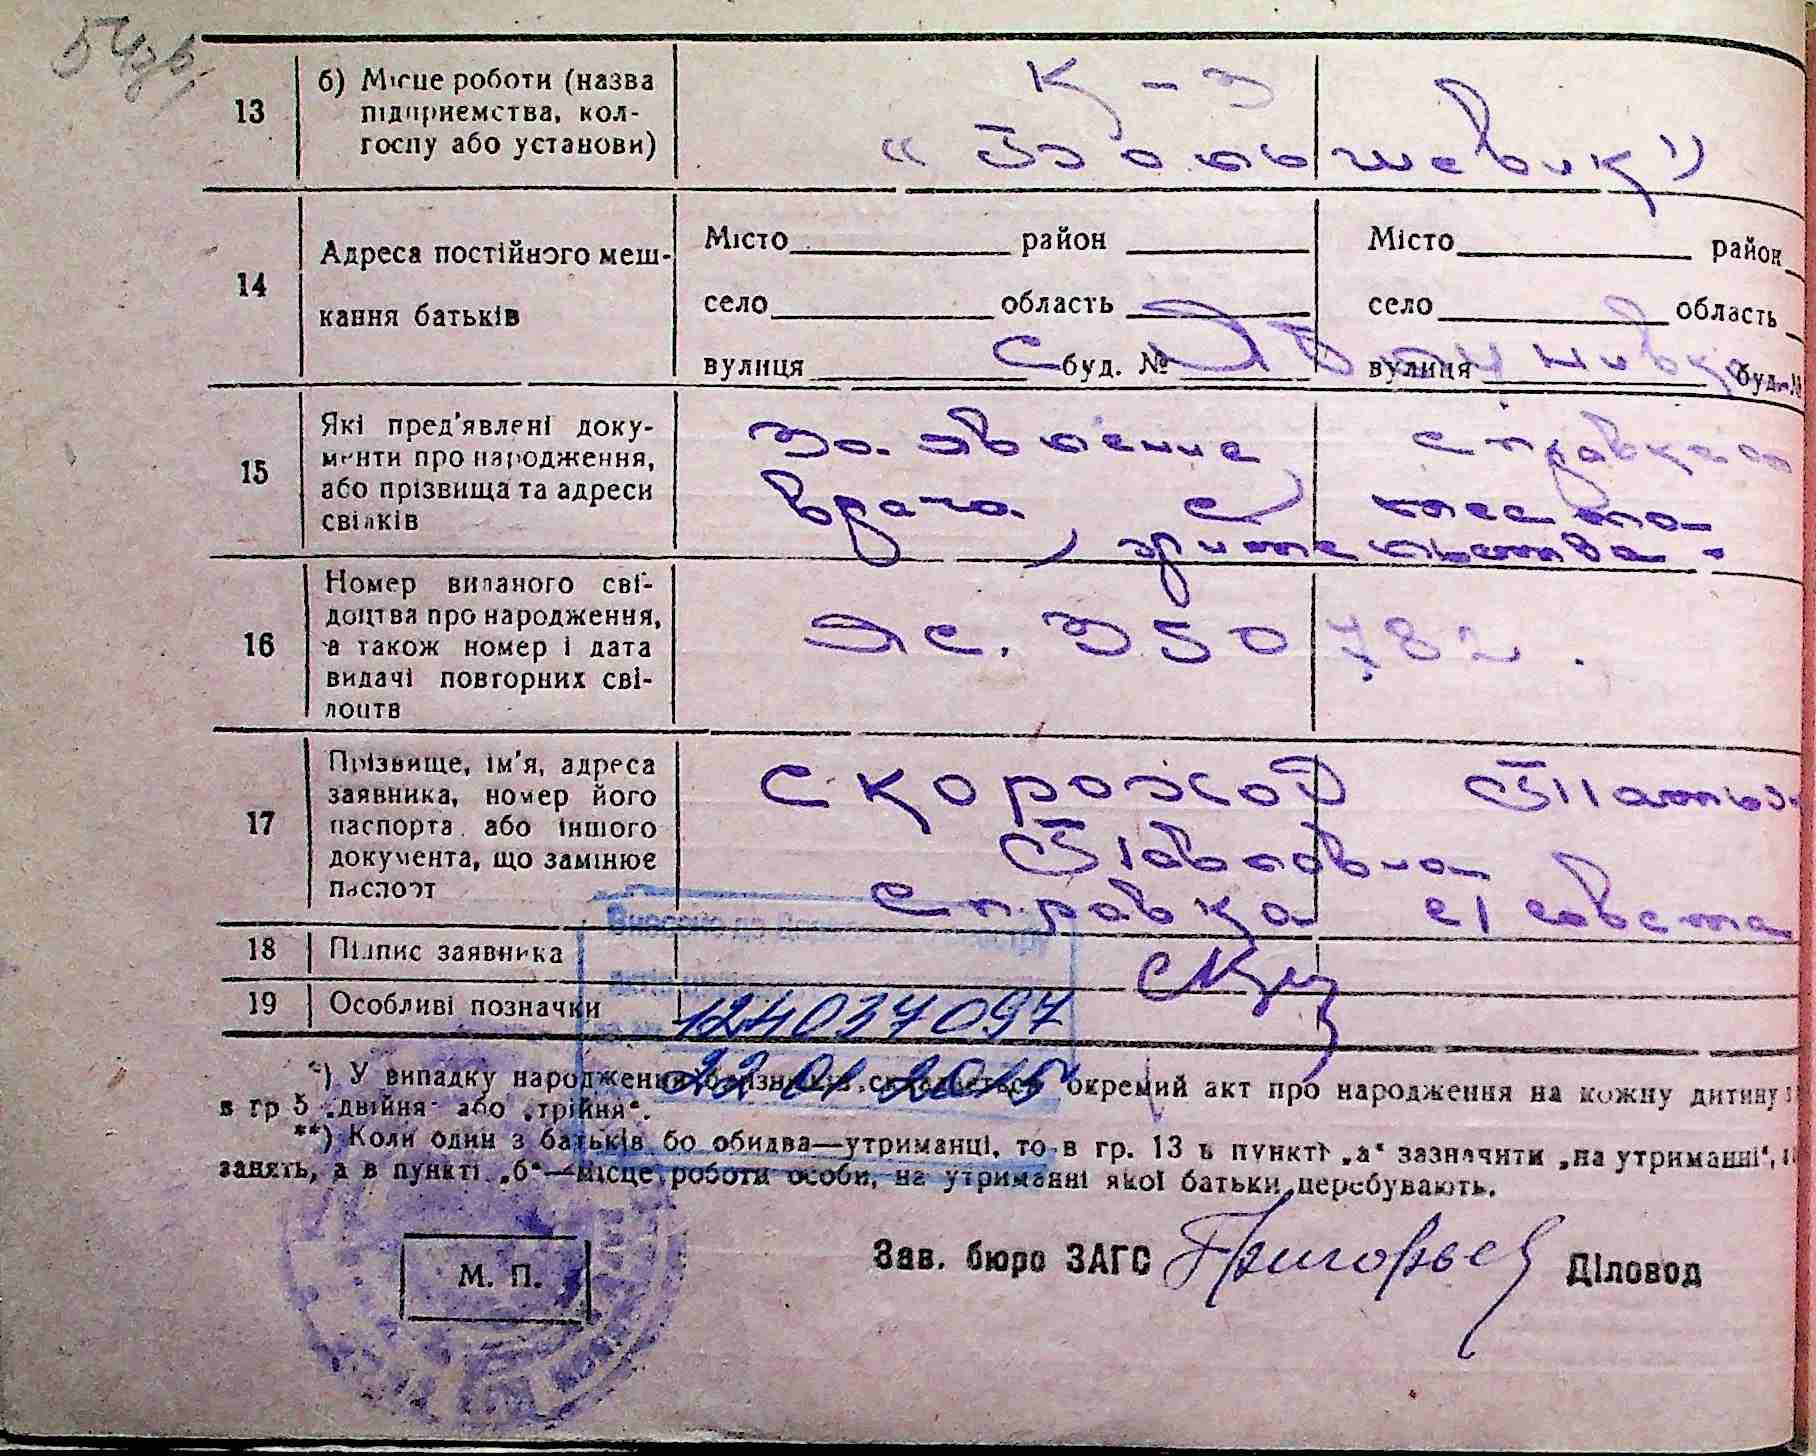 13
б) Місце роботи (назва
підприємства, кол-
госпу або установи)
к-з
"Большевик"
14
Адреса постійного меш-
кання батьків
Місто район
село область
вулиця буд. №
Місто район
село область
вулиця буд. №
с
15
Які пред'явлені доку-
менти про народження,
або прізвища та адреси
свідків
Заявление, справка
врача, с места
жительства.
16
Номер виданого сві-
доцтва про народження,
а також номер і дата
видачі повторних сві-
доцтв
ЯС. 350782.
17
Прізвище, ім'я, адреса
заявника, номер його
паспорта або іншого
документа, що замінює
паспорт
Скороход
Павловна
Справка с/совета
18
Підпис заявника
19
Особливі позначки
Внесено до Державного реєстру
124037097
22 01 2015
*) У випадку народження близнюків складається окремий акт про народження на кожну дитину з
в гр 5 „двійня" або „трійня".
**) Коли один з батьків бо обидва—утриманці, то в гр. 13 в пункті „а" зазначити „на утриманні",
занять, а в пункті „б"—місце роботи особи, на утриманні якої батьки перебувають.
М. П.
Зав. бюро ЗАГС Григорьев Діловод